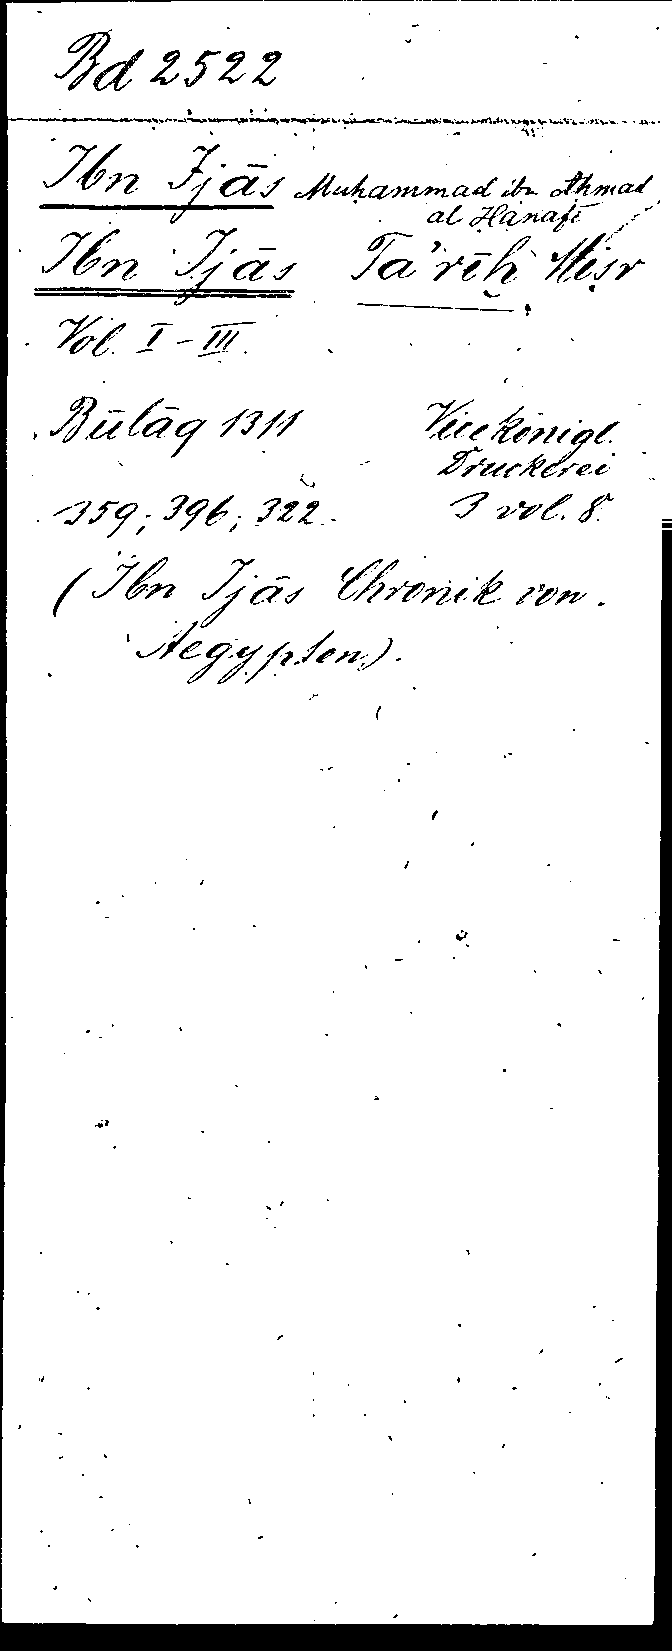 Bd 2522
Ibn Ijās Muḥammad ibn Aḥmad
al Ḥanafī
Ibn Ijās Ta'rīḫ Miṣr
Vol. I - III.
Būlāq 1311 Vicekönigl.
Druckerei
359; 396; 322. 3 vol. 8.
(Ibn Ijās Chronik von
Aegypten).